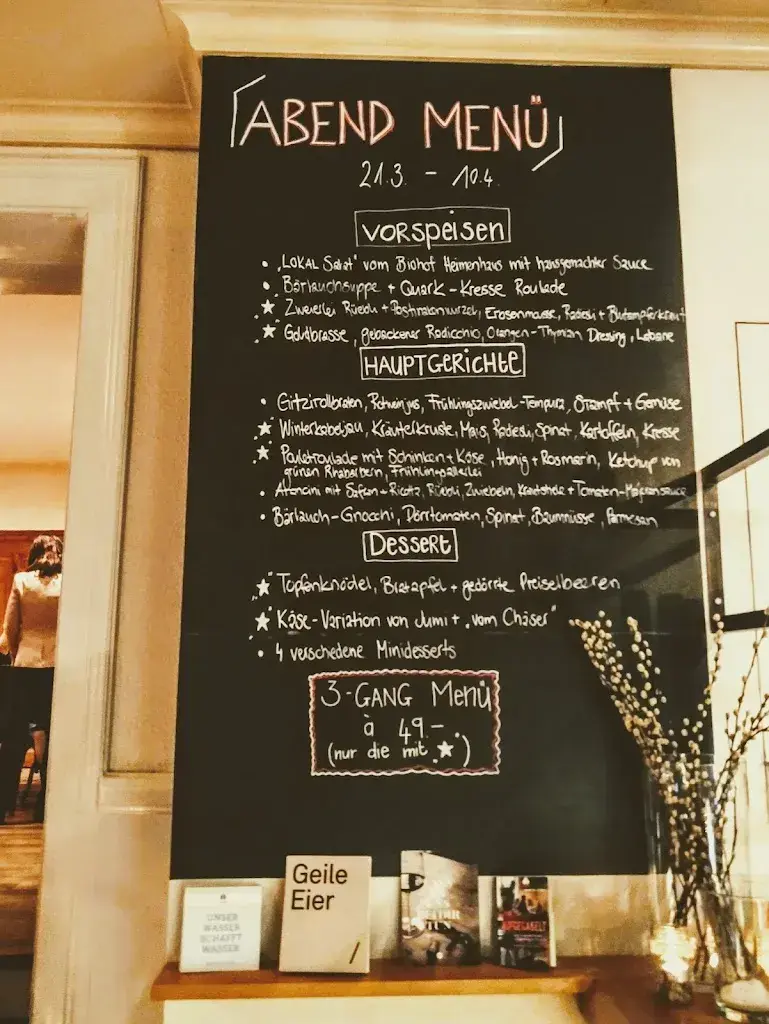 ABEND MENÜ
21.3. - 10.4.
Vorspeisen
• „LOKAL Salat" vom Biohof Heimenhaus mit hausgemachter Sauce
• Bärlauchsuppe + Quark-Kresse Roulade
★ Zweierlei Rüebli + Pastinakenwurzel, Erbsenmousse, Radiesli + Blutampferkraut
★ Goldbrasse, gebackener Radicchio, Orangen-Thymian Dressing, Labane
Hauptgerichte
• Gitzirollbraten, Rotweinjus, Frühlingszwiebel-Tempura, Stampf + Gemüse
★ Winterkabeljau, Kräuterkruste, Mais, Radiesli, Spinat, Kartoffeln, Kresse
★ Pouletroulade mit Schinken + Käse, Honig + Rosmarin, Ketchup von
grünen Rhabarbern, Frühlingsallerlei
• Arancini mit Safran + Ricotta, Rüebli, Zwiebeln, Krautstiele + Tomaten-Majoransauce
• Bärlauch-Gnocchi, Dörrtomaten, Spinat, Baumnüsse, Parmesan
Dessert
★ Topfenknödel, Bratapfel + gedörrte Preiselbeeren
★ Käse-Variation von Jumi + „vom Chäser"
• 4 verschiedene Minidesserts
3-GANG Menü
à 49.–
(nur die mit ★)
UNSER
WASSER
SCHAFFT
WASSER
Geile
Eier
/
AUFGETAFELT